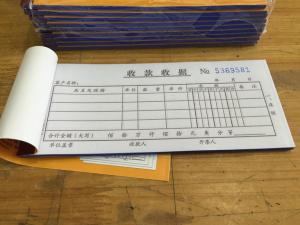 收款收据 No 5369581
年 月 日
客户名称:
品名及规格 单位 数量 单价 金额 备注
合计金额(大写) 佰 拾 万 仟 佰 拾 元 角 分
单位盖章 收款人 开票人